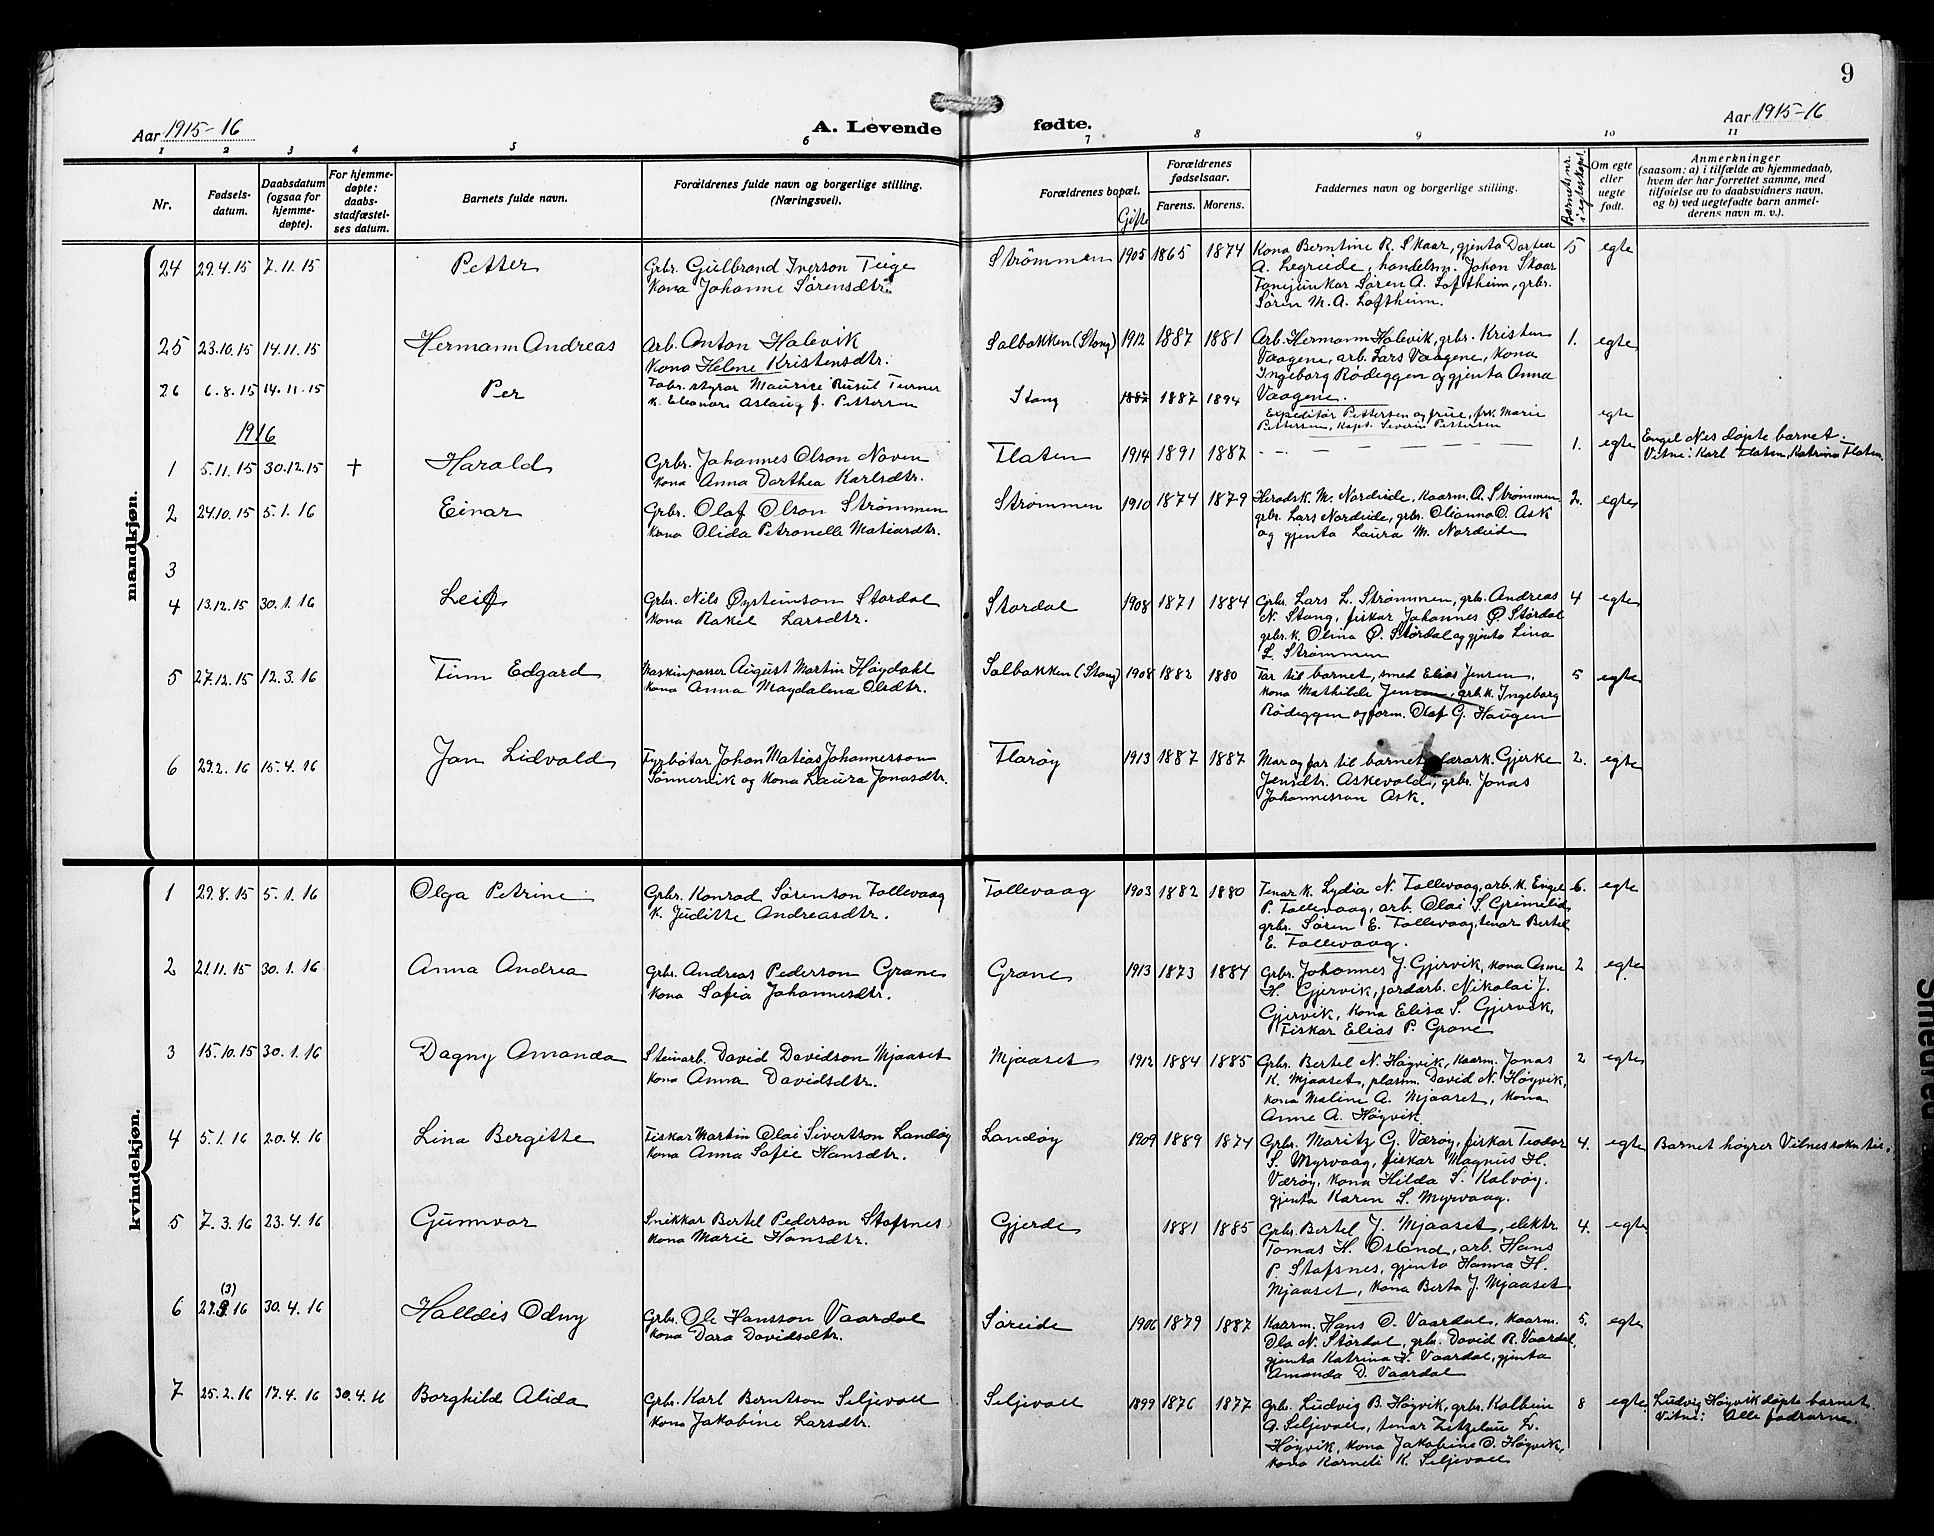 9
Aar 1915-16
A. Levende
fødte.
Aar 1915-16
1 2 3 4 5 6 7 8 9 10 11
Nr.
Fødsels-
datum.
Daabsdatum
(ogsaa for
hjemme-
døpte).
For hjemme-
døpte:
daabs-
stadfæstel-
ses datum.
Barnets fulde navn.
Forældrenes fulde navn og borgerlige stilling.
(Næringsvei).
Forældrenes bopæl.
Gifte
Forældrenes
fødselsaar.
Farens. Morens.
Faddernes navn og borgerlige stilling.
Barnets nr.
i egteskapet.
Om egte
eller
uegte
født.
Anmerkninger
(saasom: a) i tilfælde av hjemmedaab,
hvem der har forrettet samme, med
tilføielse av to daabsvidners navn.
og b) ved uegtefødte barn anmel-
derens navn m. v.).
mandkjøn.
24 29.4.15 7.11.15 Petter
Grbr. Gulbrand Iverson Teige
kona Johanne Sørensdtr.
Strømmen 1905 1865 1874
Kona Berntine R. Skaar, gjenta Dortea
A. Legreide, handelsm. Johan Skaar
Fanejunkar Søren A. Loftheim, grbr.
Søren M. A. Loftheim.
5 egte
25 23.10.15 14.11.15 Hermann Andreas
Arb. Anton Halevik
kona Helene Kristensdtr.
Salbakken (Stang) 1912 1887 1881
Arb. Hermann Halevik, grbr. Kristen
Vaagene, arb. Lars Vaagene, kona
Ingeborg Rødeggen og gjenta Anna
Vaagene.
1. egte
26 6.8.15 14.11.15 Per
Fabr. styrar Maurice Rusul Turner
k. Eleonore Aslaug f. Pettersen
Stang 1887 1887 1894
Expeditør Pettersen og frue, frk. Marie
Pettersen, Kapt. Severin Pettersen
egte
1916
1 5.11.15 30.12.15 + Harald
Grbr. Johannes Olson Noven
kona Anna Dorthea Karlsdtr.
Flaten 1914 1891 1887
1. egte
Engel Nes døpte barnet.
Vitne: Karl Flaten, Katrina Flaten.
2 24.10.15 5.1.16 Einar
Grbr. Olaf Olson Strømmen
kona Olida Petronelle Matiasdtr.
Strømmen 1910 1874 1879
Heradsk. M. Nordeide, kaarm. O. Strømmen
grbr. Lars Nordeide, grbr. Olianna O. Ask
og gjenta Laura M. Nordeide
2. egte
3
4 13.12.15 30.1.16 Leif
Grbr. Nils Øysteinson Stordal
kona Rakel Larsdtr.
Stordal 1908 1871 1884
Grbr. Lars L. Strømmen, grbr. Andreas
N. Stang, fiskar Johannes P. Størdal
grbr. k. Olina P. Størdal og gjenta Lina
L. Strømmen
4 egte
5 27.12.15 12.3.16 Finn Edgard
Maskinpasser August Martin Høydahl
kona Anna Magdalena Olsdtr.
Salbakken (Stang) 1908 1882 1880
Far til barnet, smed Elias Jensen,
kona Mathilde Jensen, grb.k. Ingeborg
Rødeggen og form. Olaf G. Haugen
5 egte
6 29.2.16 15.4.16 Jan Lidvald
Fyrbøtar Johan Matias Johannesson
Sønnervik og kona Laura Jonasdtr.
Florøy 1913 1887 1887
Mor og far til barnet, lærark. Gjerke
Jensdtr. Askevold, grbr. Jonas
Johannesson Ask.
2. egte
kvindekjøn.
1 29.8.15 5.1.16 Olga Petrine
Grbr. Konrad Sørenson Follevaag
k. Juditte Andreasdtr.
Follevaag 1903 1882 1880
Tenar k. Lydia N. Follevaag, arb. k. Engel
P. Follevaag, arb. Olai S. Grimelid
grbr. Søren E. Follevaag, tenar Bertel
E. Follevaag.
6. egte
2 21.11.15 30.1.16 Anna Andrea
Grbr. Andreas Pederson Grane
kona Sofia Johannesdtr.
Grane 1913 1873 1884
Grbr. Johannes J. Gjervik, kona Anne
H. Gjervik, jordarb. Nikolai J.
Gjervik, kona Elisa S. Gjervik,
Fiskar Elias P. Grane
2 egte
3 15.10.15 30.1.16 Dagny Amanda
Steinarb. David Davidson Mjaaset
kona Anna Davidsdtr.
Mjaaset 1912 1884 1885
Grbr. Bertel N. Høgvik, kaarm. Jonas
K. Mjaaset, plassm. David N. Høyvik,
kona Maline A. Mjaaset, kona
Anne A. Høgvik
2 egte
4 5.1.16 20.4.16 Lina Bergitte
Fiskar Martin Olai Sivertson Landøy
kona Anna Sofie Hansdtr.
Landøy 1909 1889 1874
Grbr. Maritz G. Værøy, fiskar Teodor
S. Myrvaag, fiskar Magnus H.
Værøy, kona Hilda S. Kalvøy.
gjenta Karen S. Myrvaag.
4. egte
Barnet høyrer Vilnes sokn til.
5 7.3.16 23.4.16 Gunnvor
Snikkar Bertel Pederson Stafsnes
kona Marie Hansdtr.
Gjerde 1881 1885
Grbr. Bertel J. Mjaaset, elektr.
Tomas H. Osland, arb. Hans
P. Stafsnes, gjenta Hanna H.
Mjaaset, kona Berta J. Mjaaset
4. egte
(3)
6 27.3.16 30.4.16 Halldis Odny
Grbr. Ole Hansson Vaardal
kona Dara Davidsdtr.
Søreide 1906 1879 1887
Kaarm. Hans O. Vaardal, kaarm.
Ola N. Størdal, grbr. David R. Vaardal,
gjenta Katrina H. Vaardal, gjenta
Amanda D. Vaardal
5. egte
7 25.2.16 17.4.16 30.4.16 Borghild Alida
Grbr. Karl Berntson Seljevoll
kona Jakobine Larsdtr.
Seljevoll 1899 1876 1877
Grbr. Ludvig B. Høgvik, grbr. Kolbein
A. Seljevoll, tenar
Høgvik, kona Jakobine O. Høgvik,
kona K. Seljevoll
8 egte
Ludvig Høgvik døpte barnet.
Vitne: Alle fadrarne.